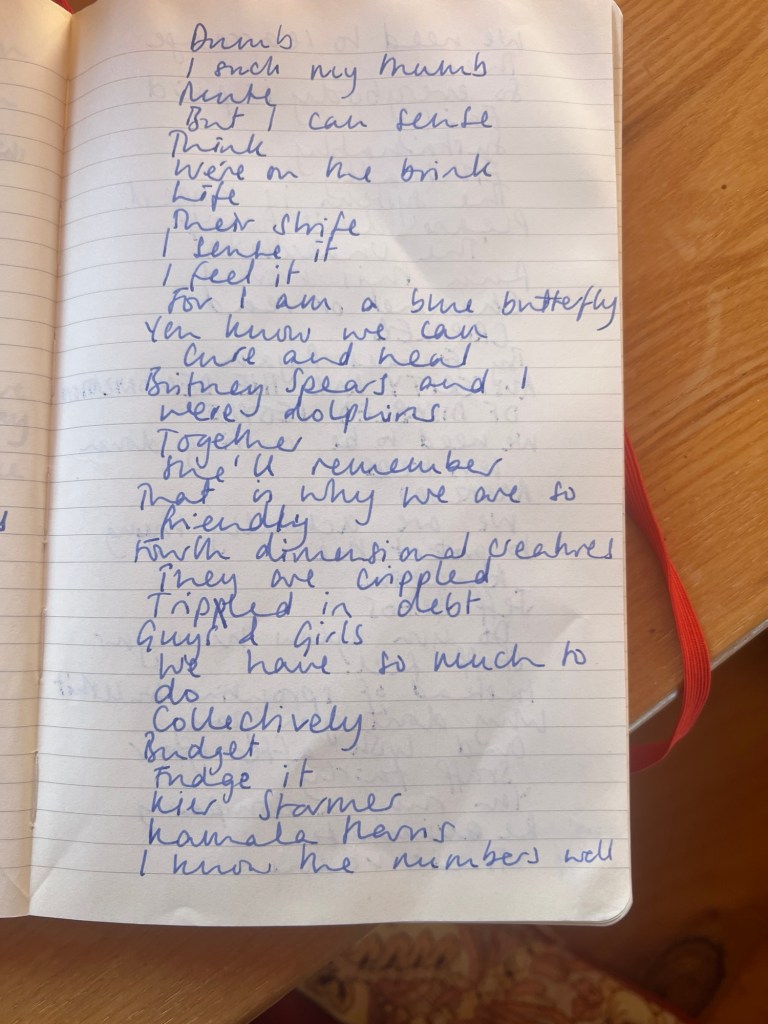 Dumb
I suck my thumb
Mute
But I can sense
Think
We're on the brink
Life
Their strife
I sense it
I feel it
For I am a blue butterfly
You know we can
Cure and heal
Britney Spears and I
were dolphins
Together
She'll remember
That is why we are so
friendly
Fourth dimensional creatures
They are crippled
Trippled in debt
Guys & Girls
We have so much to
do
Collectively
Budget
Fudge it
Kier Starmer
Kamala Harris
I know the numbers well